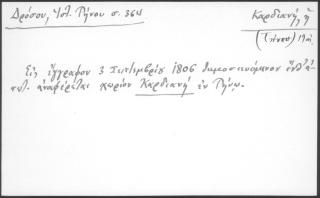 Δρόσου, Ἱστ. Τήνου σ. 364
Καρδιανή, ἡ
(Τῆνος)
Εἰς ἔγγραφον 3 Σεπτεμβρίου 1806 δημοσιευόμενον
ἀναφέρεται χωρίον Καρδιανή ἐν Τήνῳ.